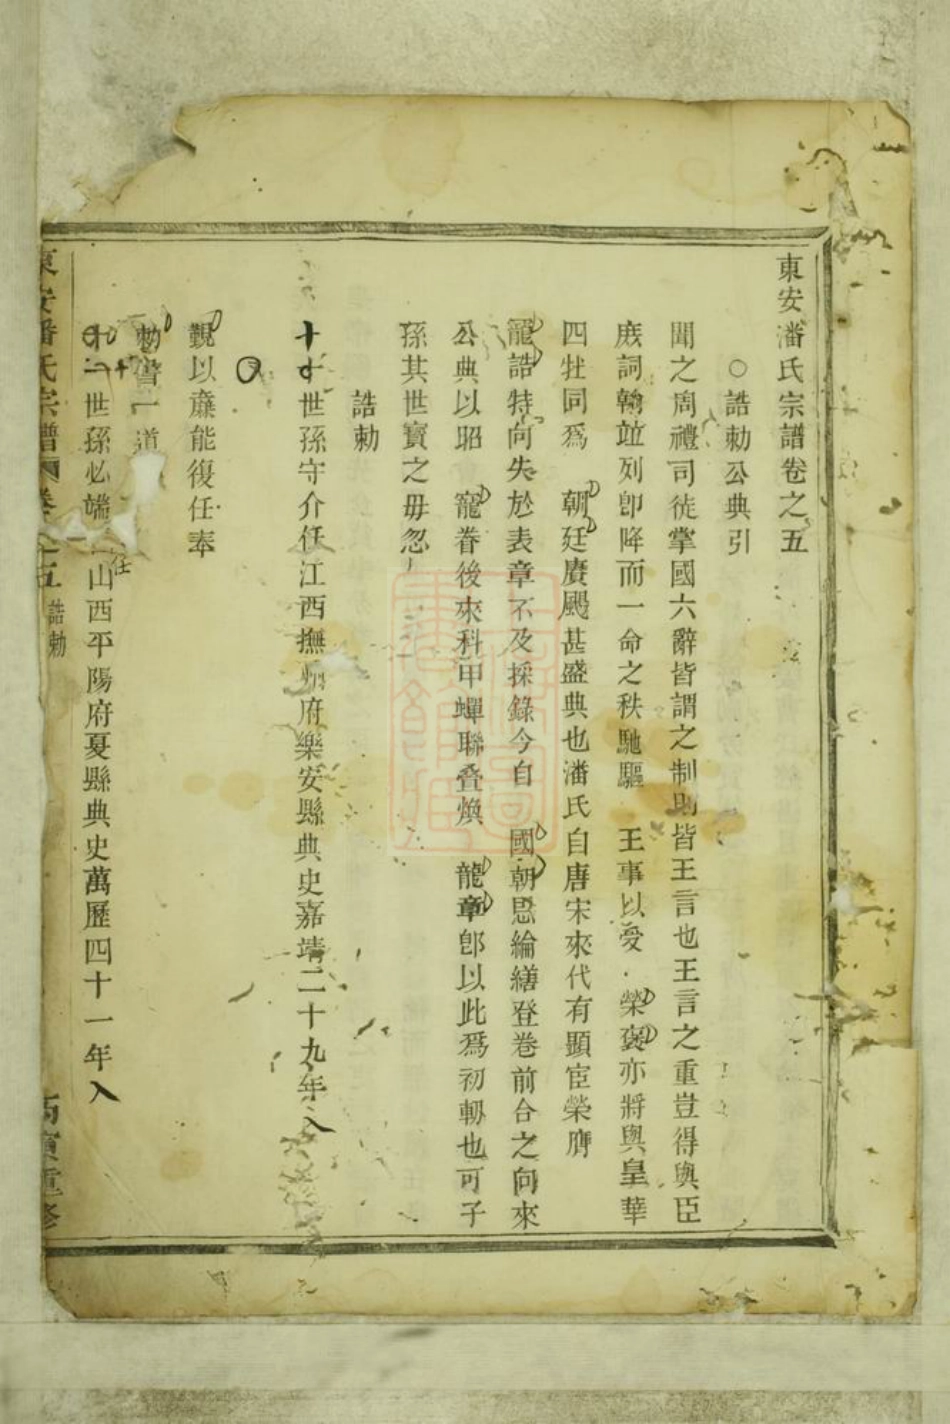 東安潘氏宗譜卷之五
○誥勅公典引
聞之周禮司徒掌國六辭皆謂之制則皆王言也王言之重豈得與臣
庻詞翰竝列卽降而一命之秩馳驅 王事以受 榮褒亦將與皇華
四牡同爲 朝廷賡颺甚盛典也潘氏自唐宋來代有顯宦榮膺
寵誥特向失於表章不及採錄今自 國朝恩綸繕登卷前合之向來
公典以昭 寵眷後來科甲蟬聯叠煥 龍章卽以此爲初軔也可子
孫其世寶之毋忽
誥勅
十世孫守介任江西撫州府樂安縣典史嘉靖二十九年入
覲以亷能復任奉
勅書一道
十二世孫必端任山西平陽府夏縣典史萬歷四十一年入
東安潘氏宗譜 卷之五 誥勅 重修